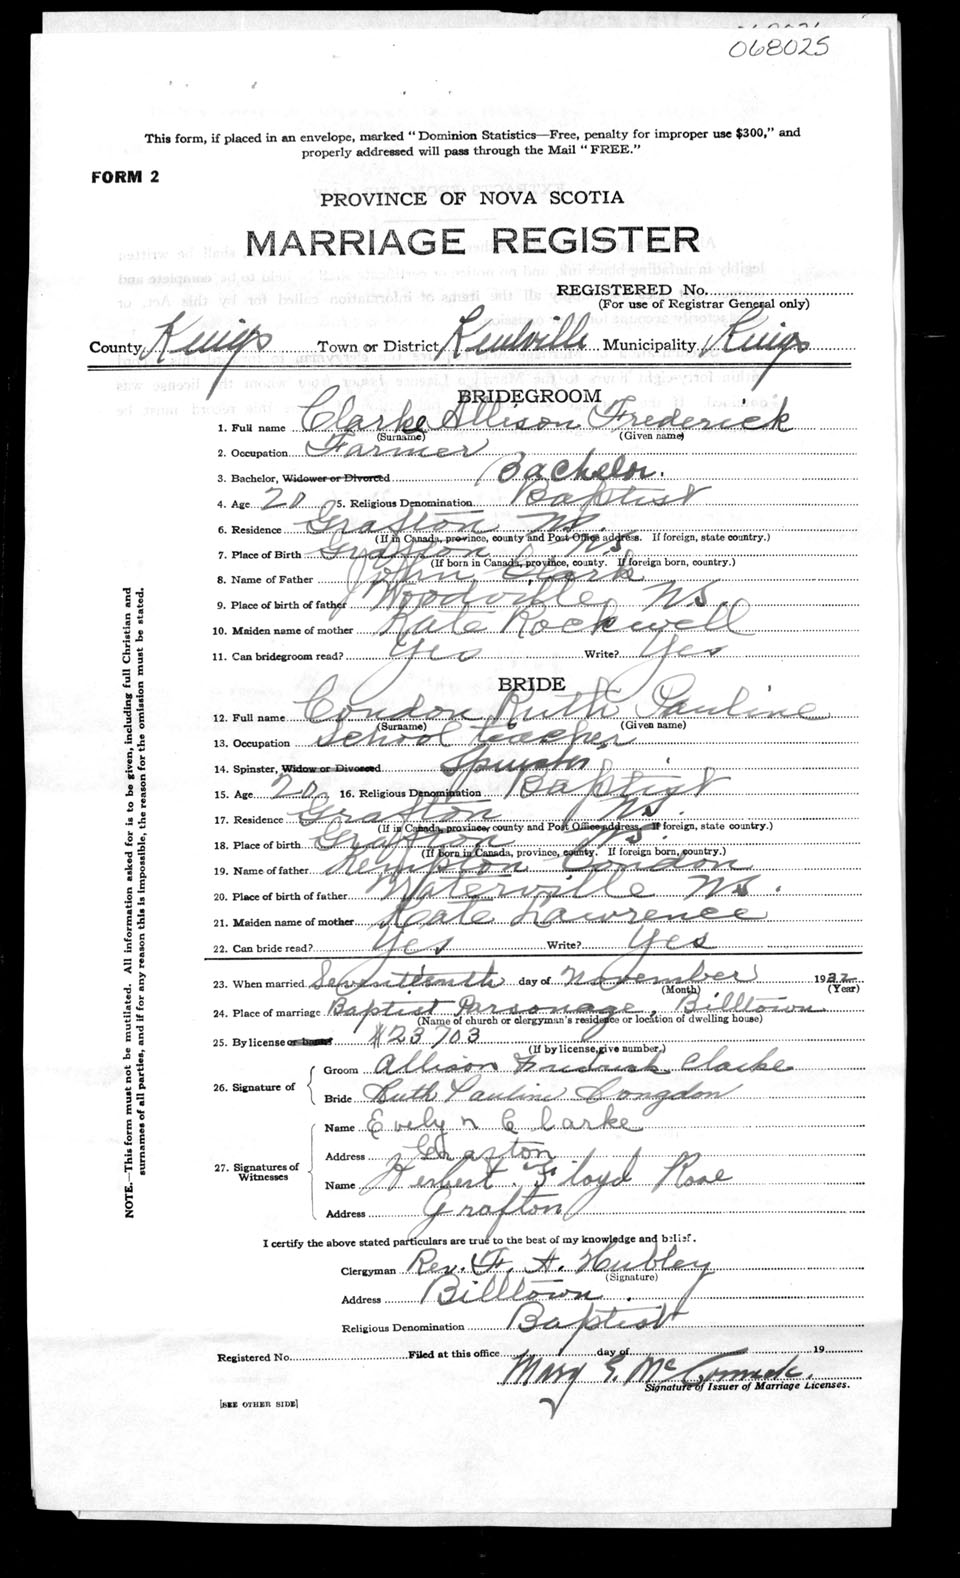 068025
This form, if placed in an envelope, marked "Dominion Statistics—Free, penalty for improper use $300," and
properly addressed will pass through the Mail "FREE."
FORM 2
PROVINCE OF NOVA SCOTIA
MARRIAGE REGISTER
REGISTERED No.
(For use of Registrar General only)
County Kings Town or District Kentville Municipality Kings
BRIDEGROOM
1. Full name Clarke Allison Frederick
(Surname) (Given name)
2. Occupation Farmer
3. Bachelor, Widower or Divorced Bachelor.
4. Age 20 5. Religious Denomination Baptist
6. Residence Grafton NS.
(If in Canada, province, county and Post Office address. If foreign, state country.)
7. Place of Birth Grafton NS
(If born in Canada, province, county. If foreign born, country.)
8. Name of Father John Clark
9. Place of birth of father Woodville NS.
10. Maiden name of mother Kate Rockwell
11. Can bridegroom read? Yes Write? Yes
BRIDE
12. Full name Condon Ruth Pauline
(Surname) (Given name)
13. Occupation School teacher
14. Spinster, Widow or Divorced Spinster
15. Age 20 16. Religious Denomination Baptist
17. Residence Grafton NS.
(If in Canada, province, county and Post Office address. If foreign, state country.)
18. Place of birth Grafton NS.
(If born in Canada, province, county. If foreign born, country.)
19. Name of father Kempton Condon
20. Place of birth of father Waterville NS.
21. Maiden name of mother Kate Lawrence
22. Can bride read? Yes Write? Yes
23. When married Seventeenth day of November 1932
(Month) (Year)
24. Place of marriage Baptist Parsonage, Billtown
(Name of church or clergyman's residence or location of dwelling house)
25. By license or banns #23703
(If by license, give number.)
26. Signature of
Groom Allison Fredrick Clarke
Bride Ruth Pauline Congdon
27. Signatures of Witnesses
Name Evelyn C Clarke
Address Grafton
Name Herbert Floyd Rose
Address Grafton
I certify the above stated particulars are true to the best of my knowledge and belief.
Clergyman Rev. F. H. Hubley
(Signature)
Address Billtown.
Religious Denomination Baptist
Registered No. Filed at this office day of 19
Mary E. McCormick.
Signature of Issuer of Marriage Licenses.
[SEE OTHER SIDE]
NOTE.—This form must not be mutilated. All information asked for is to be given, including full Christian and
surnames of all parties, and if for any reason this is impossible, the reason for the omission must be stated.